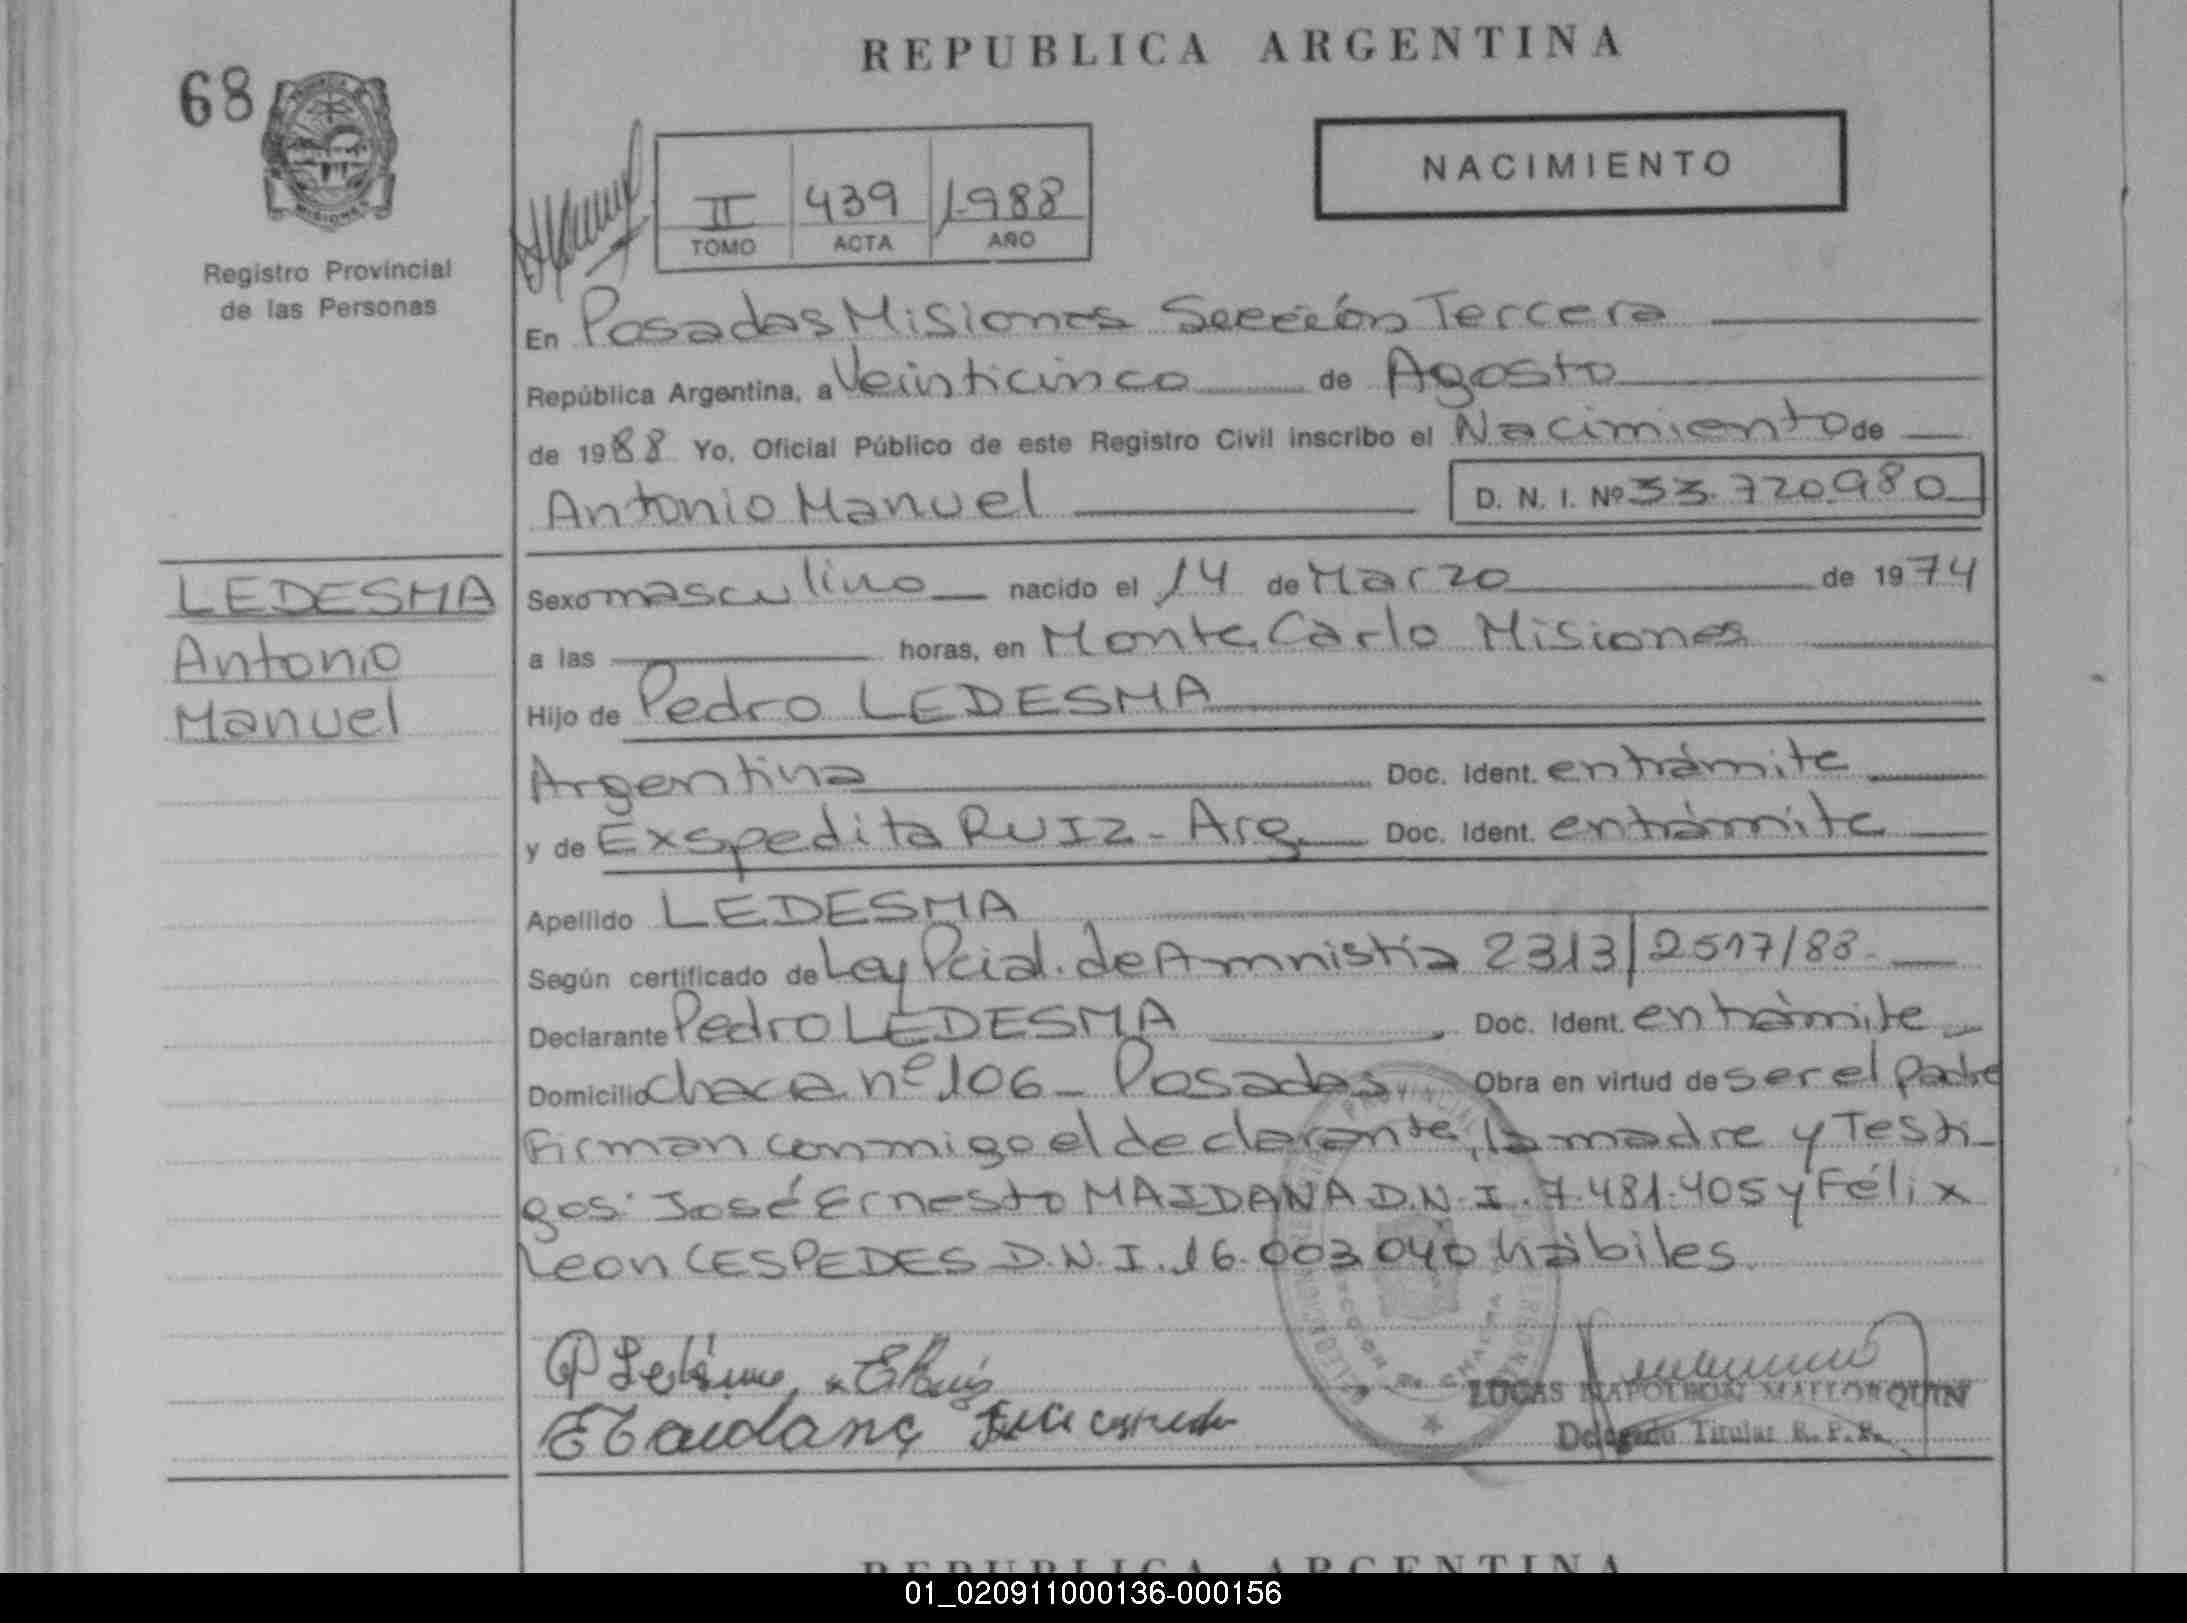 REPUBLICA ARGENTINA
68
NACIMIENTO
II 439 1988
TOMO ACTA AÑO
MISIONES
Registro Provincial
de las Personas
En Posadas Misiones Sección Tercera
República Argentina, a Veinticinco de Agosto
de 1988 Yo, Oficial Público de este Registro Civil inscribo el Nacimiento de
Antonio Manuel D. N. I. Nº 33.720.980
LEDESMA
Antonio
Manuel
Sexo masculino nacido el 14 de Marzo de 1974
a las horas, en Monte Carlo Misiones
Hijo de Pedro LEDESMA
Argentina Doc. Ident. entrámite
y de Exspedita RUIZ - Arg Doc. Ident. entrámite
Apellido LEDESMA
Según certificado de Ley Pcial. de Amnistía 2313/2517/88.
Declarante Pedro LEDESMA Doc. Ident. entrámite
Domicilio Chaca nº 106 - Posadas Obra en virtud de ser el padre
Firman conmigo el declarante, la madre y Testi-
gos: José Ernesto MAIDANA D.N.I. 7.481.405 y Félix
Leon CESPEDES D.N.I. 16.003.040 hábiles.
P Ledesma E Ruis
LUCAS NAPOLEON MALLORQUIN
E Maidana
Delegado Titular R. P. P.
REPUBLICA ARGENTINA
01_020911000136-000156